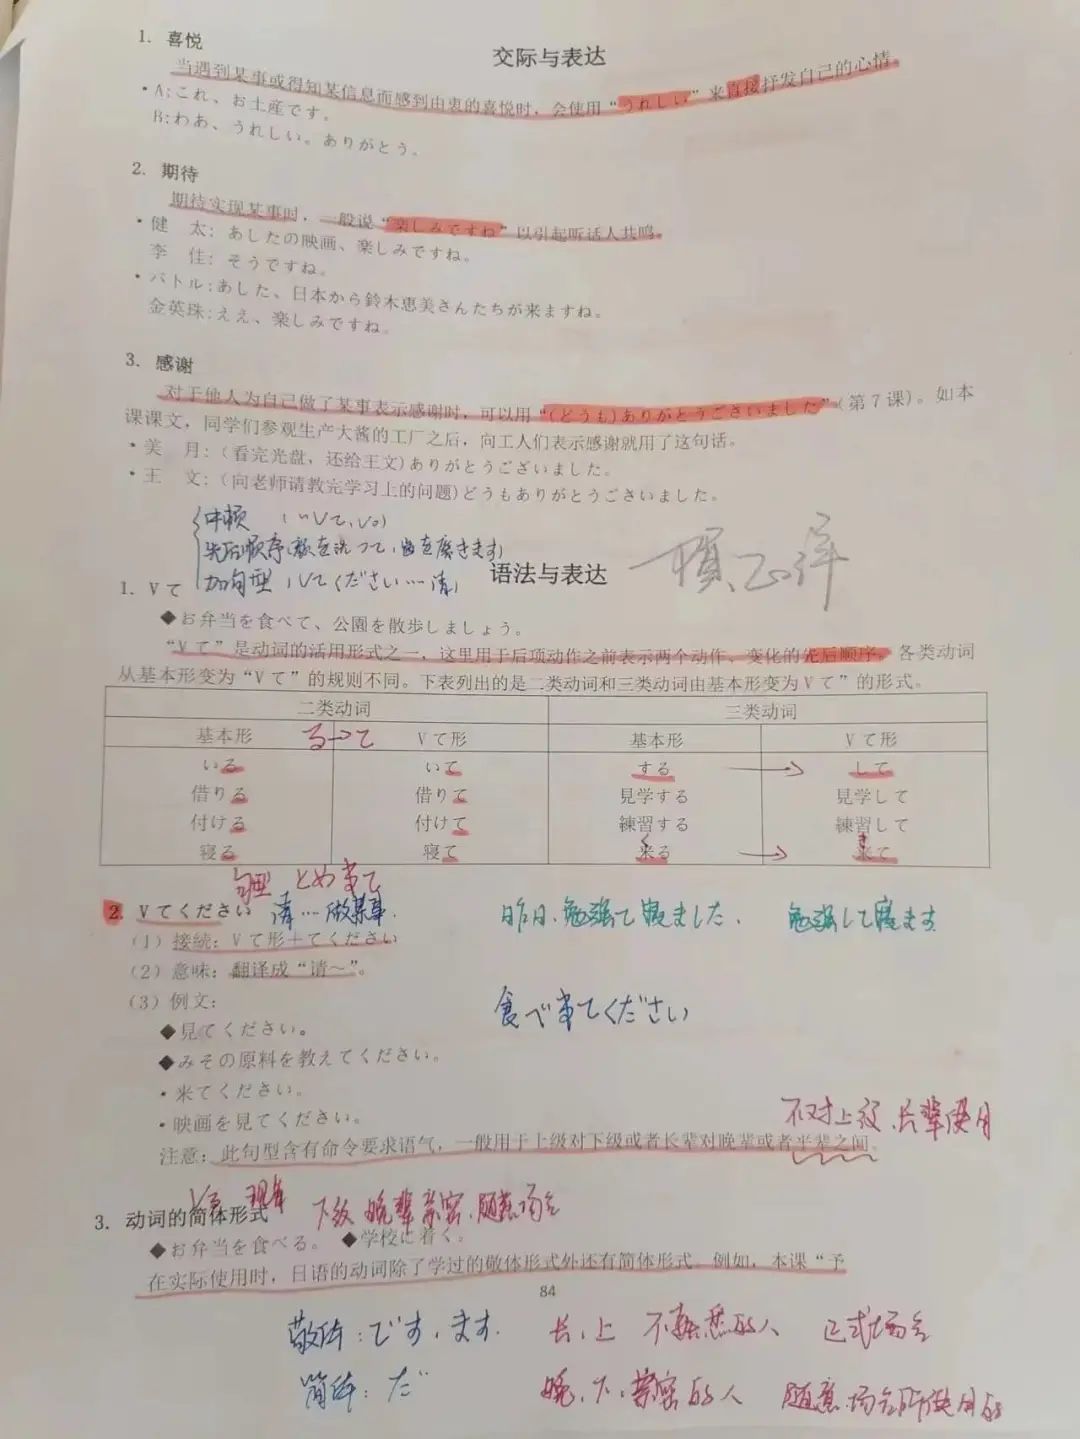 交际与表达
1. 喜悦
当遇到某事或得知某信息而感到由衷的喜悦时，会使用“うれしい”来直接抒发自己的心情。
・A:これ、お土産です。
B:わあ、うれしい。ありがとう。
2. 期待
期待实现某事时，一般说“楽しみですね”以引起听话人共鸣。
・健　太: あしたの映画、楽しみですね。
李　佳: そうですね。
・バトル:あした、日本から鈴木恵美さんたちが来ますね。
金英珠:ええ、楽しみですね。
3. 感谢
对于他人为自己做了某事表示感谢时，可以用“(どうも)ありがとうございました”(第7课)。如本
课课文，同学们参观生产大酱的工厂之后，向工人们表示感谢就用了这句话。
・美　月:(看完光盘，还给王文)ありがとうございました。
・王　文:(向老师请教完学习上的问题)どうもありがとうございました。
先后顺序(顔を洗って、歯を磨きます)
加句型 (Vてください…请)
语法与表达
1. Vて
◆お弁当を食べて、公園を散歩しましょう。
“Vて”是动词的活用形式之一，这里用于后项动作之前表示两个动作、变化的先后顺序。各类动词
从基本形变为“Vて”的规则不同。下表列出的是二类动词和三类动词由基本形变为Vて”的形式。
二类动词 三类动词
基本形 る→て Vて形 基本形 Vて形
いる いて する → して
借りる 借りて 見学する 見学して
付ける 付けて 練習する 練習して
寝る 寝て 来る → 来て
句型
2. Vてください 请…做某事.
昨日、勉強して寝ました. 勉強して寝ます
(1) 接続: Vて形＋てください
(2) 意味: 翻译成“请～”。
(3) 例文:
食べ てください
◆見てください。
◆みその原料を教えてください。
・来てください。
・映画を見てください。
不对上级、长辈使用
注意: 此句型含有命令要求语气，一般用于上级对下级或者长辈对晚辈或者平辈之间。
下级 晚辈 亲密、随意场合
3. 动词的简体形式
◆お弁当を食べる。 ◆学校に着く。
在实际使用时，日语的动词除了学过的敬体形式外还有简体形式。例如，本课“予
84
敬体: です、ます. 长、上 不熟悉的人 正式场合
简体: だ 晚、下、亲密的人 随意场合所使用的